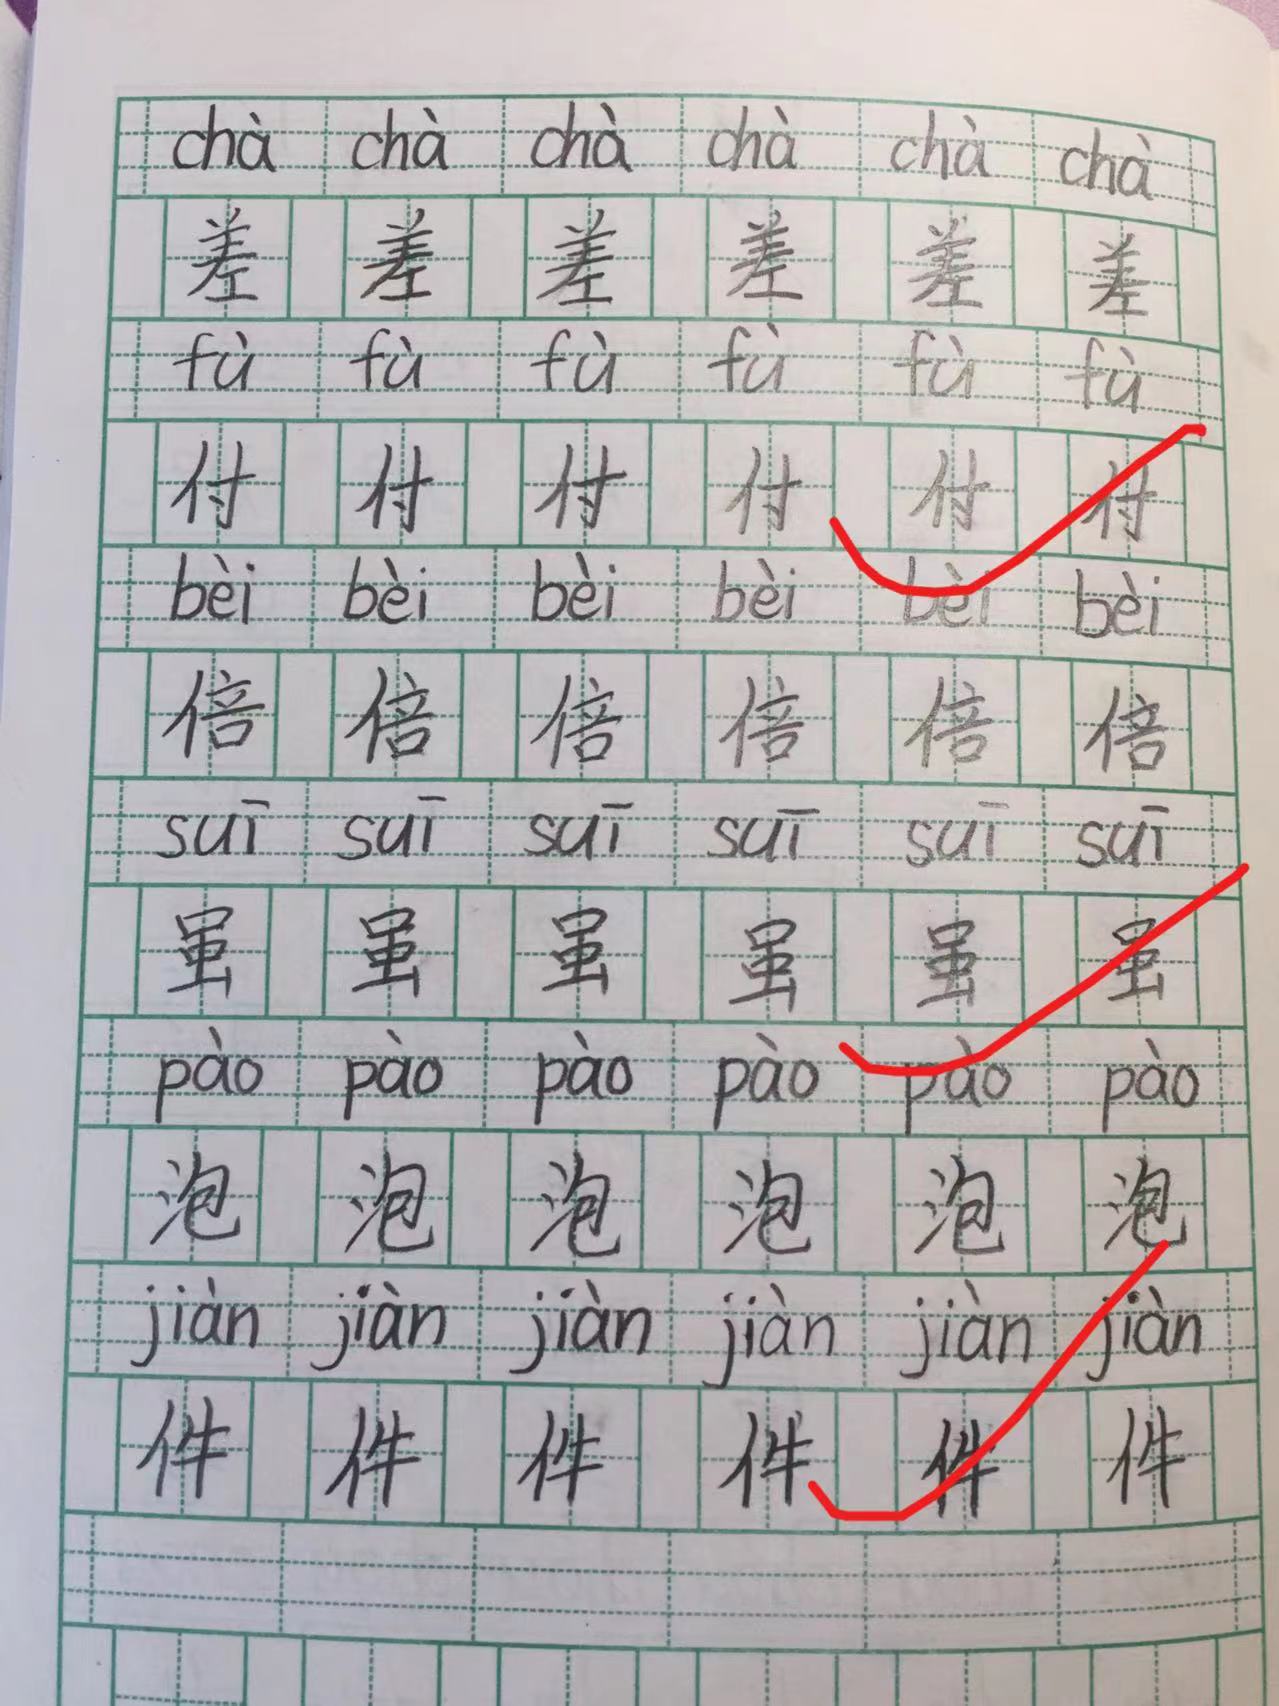 chà chà chà chà chà chà
差 差 差 差 差 差
fù fù fù fù fù fù
付 付 付 付 付 付
bèi bèi bèi bèi bèi bèi
倍 倍 倍 倍 倍 倍
suī suī suī suī suī suī
虽 虽 虽 虽 虽 虽
pào pào pào pào pào pào
泡 泡 泡 泡 泡 泡
jiàn jiàn jiàn jiàn jiàn jiàn
件 件 件 件 件 件